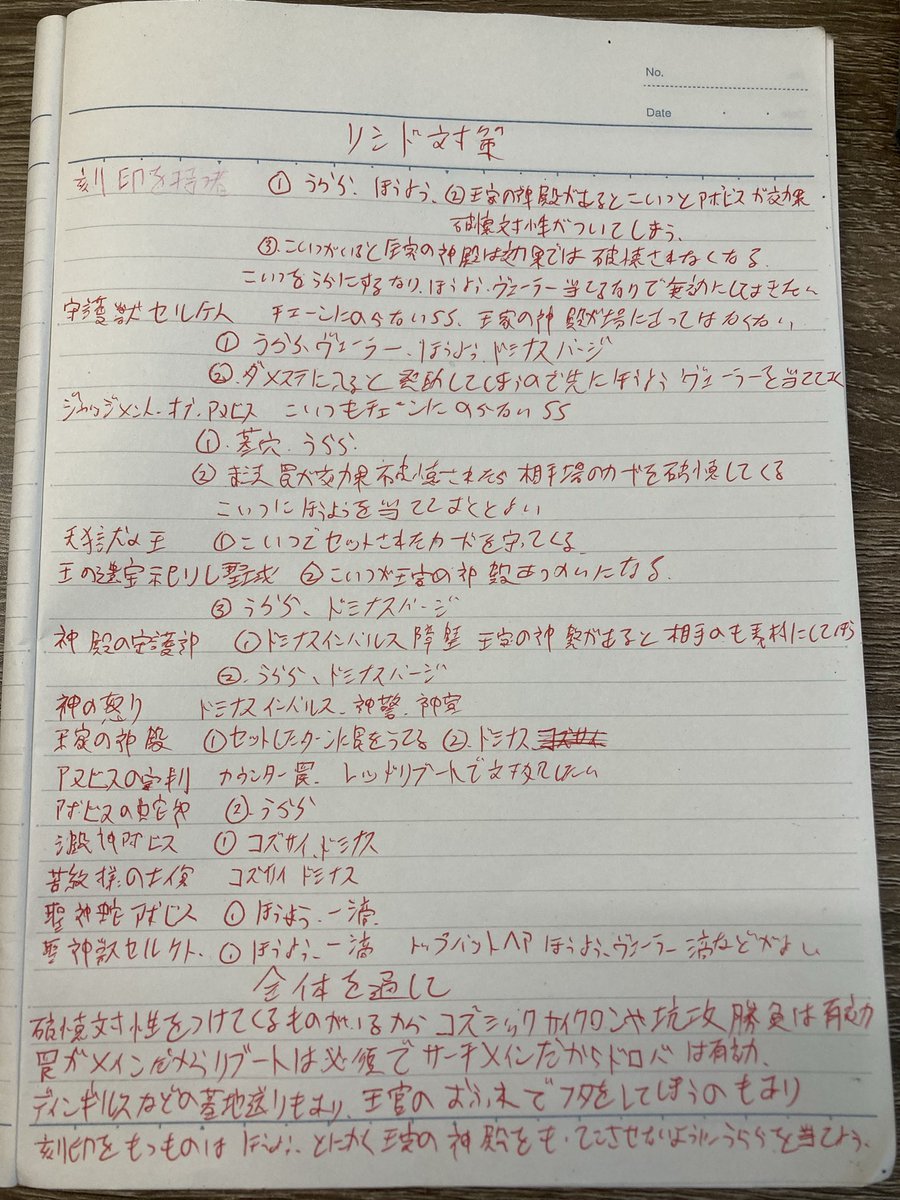 No.
Date
リシド対策
刻印を持つ者 ① うらら、ほうよう、② 王家の神殿があるとこいつとアポピスが効果
破壊対性がついてしまう、
③ こいつがいると王家の神殿は効果では破壊されなくなる
こいつをうらにするなり、ほうよう、ヴェーラー当てるなりで無効にしておきたい
守護獣セルケト チェーンにのらないSS、王家の神殿が場にあってはならない
① うらら、ヴェーラー、ほうよう、ドミナスパージ
② ダメステに入ると発動してしまうので先にほうようヴェーラーを当てておく
ジャッジメント・オブ・アヌビス こいつもチェーンにのらないSS
①. 墓穴、うらら
② まほう罠が効果破壊されたら相手場のカードを破壊してくる
こいつにほうようを当てておくとよい
① こいつでセットされたカードを守ってくる
② こいつが王家の神殿あつかいになる
③ うらら、ドミナスパージ
神殿の守護 ① ドミナスインパルス 障壁 王家の神殿があると相手のも素材にしてくる
②. うらら、ドミナスパージ
神の怒り ドミナスインパルス、神警、神宣
王家の神殿 ① セットしたターンに罠をうてる ②. ドミナス
アヌビスの審判 カウンター罠、レッドリブートで対処したい
アポピスの ② うらら
アポピス ① コズサイ、ドミナス
コズサイ ドミナス
聖神蛇アポピス ① ほうよう、一滴、
聖神獣セルケト、① ほうよう、一滴 トップハットヘア ほうよう、ヴェーラー 滴などがよい
全体を通して
破壊対性をつけてくるものがいるからコズミックサイクロンや拮抗勝負は有効
罠がメインだからリブートは必須でサーチメインだからドロバは有効、
ディンギルスなどの墓地送りもあり、王宮のおふれでフタをしてしまうのもあり
刻印をもつものはほうよう、とにかく王家の神殿をもってこさせないようにうららを当てよう、